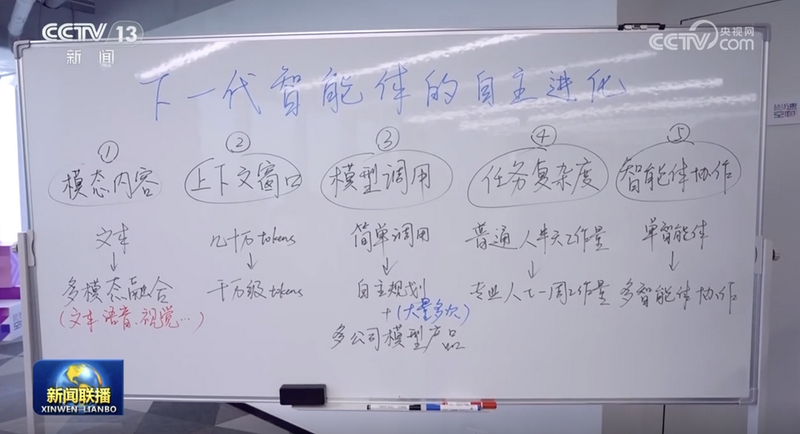 CCTV 13
新闻
央视网
CCTV.com
下一代智能体的自主进化
① ② ③ ④ ⑤
模态内容 上下文窗口 模型调用 任务复杂度 智能体协作
文本 几十万tokens 简单调用 普通人半天工作量 单智能体
↓ ↓ ↓ ↓ ↓
多模态融合 千万级tokens 自主规划 专业人士一周工作量 多智能体协作
(文本 语音、视觉…) + (大量多次)
多公司模型产品
新闻联播
XINWEN LIANBO